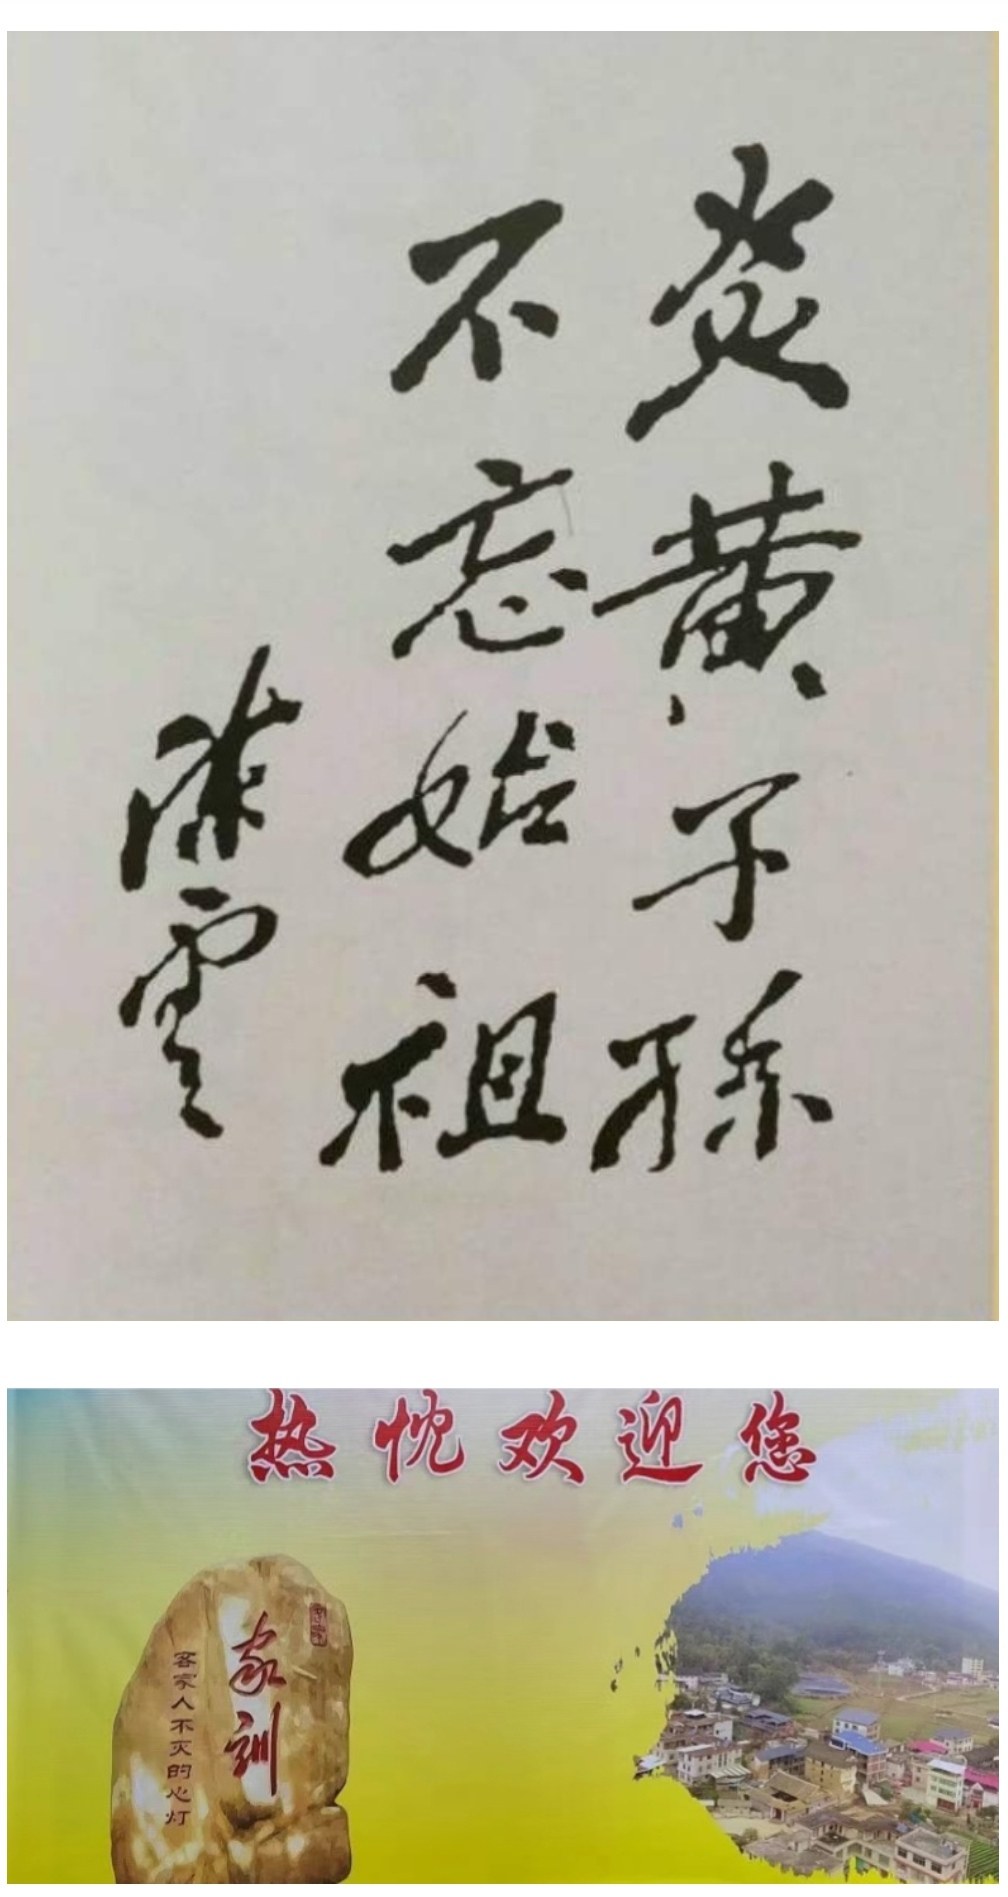 炎黄子孫
不忘始祖
陳雲
热忱欢迎您
家训
客家人不灭的心灯